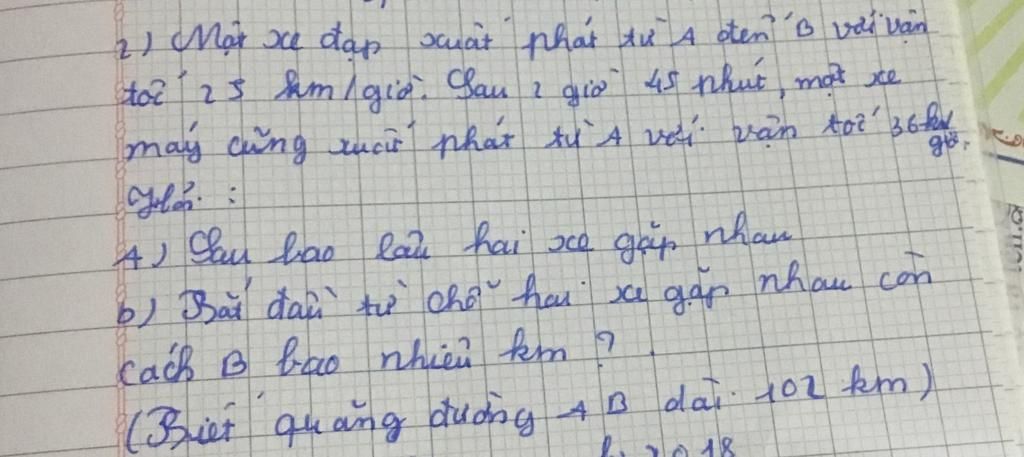 2) Một xe đạp xuất phát từ A đến B với vận
tốc 25 km/giờ. Sau 2 giờ 45 phút, một xe
máy cũng xuất phát từ A với vận tốc 36 km/
giờ.
Hỏi :
A) Sau bao lâu hai xe gặp nhau
b) Bắt đầu từ chỗ hai xe gặp nhau còn
cách B bao nhiêu km ?
(Biết quãng đường AB dài 102 km)